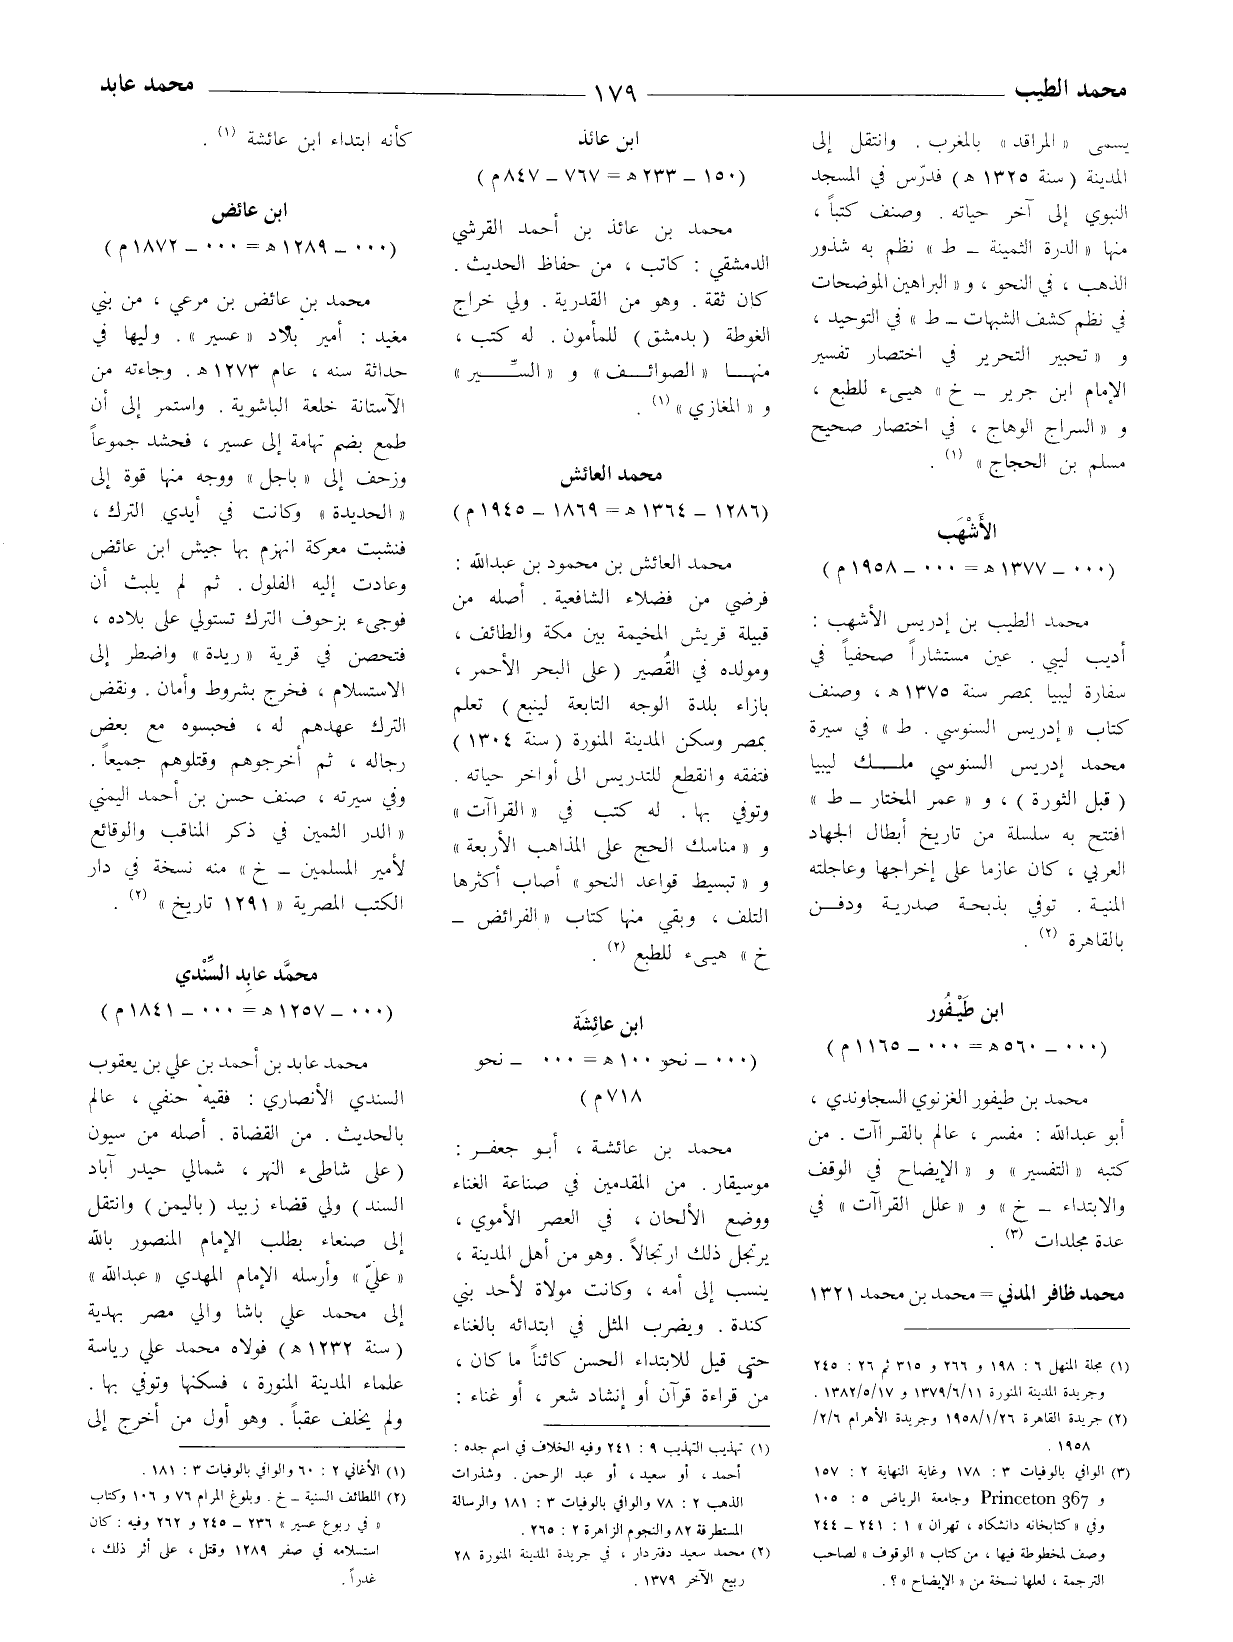 محمد الطيب ١٧٩ محمد عابد
يسمى « المراقد » بالمغرب . وانتقل إلى
المدينة ( سنة ١٣٢٥ ه‍ ) فدرّس في المسجد
النبوي إلى آخر حياته . وصنف كتباً ،
منها « الدرة الثمينة ـ ط » نظم به شذور
الذهب ، في النحو ، و « البراهين الموضحات
في نظم كشف الشبهات ـ ط » في التوحيد ،
و « تحبير التحرير في اختصار تفسير
الإمام ابن جرير ـ خ » هيىء للطبع ،
و « السراج الوهاج ، في اختصار صحيح
مسلم بن الحجاج » (١) .
الأَشْهَب
(٠٠٠ ـ ١٣٧٧ ه‍ = ٠٠٠ ـ ١٩٥٨ م )
محمد الطيب بن إدريس الأشهب :
أديب ليبي . عين مستشاراً صحفياً في
سفارة ليبيا بمصر سنة ١٣٧٥ ه‍ ، وصنف
كتاب « إدريس السنوسي . ط » في سيرة
محمد إدريس السنوسي ملك ليبيا
( قبل الثورة ) ، و « عمر المختار ـ ط »
افتتح به سلسلة من تاريخ أبطال الجهاد
العربي ، كان عازما على إخراجها وعاجلته
المنية . توفي بذبحة صدرية ودفن
بالقاهرة (٢) .
ابن طَيْفُور
(٠٠٠ ـ ٥٦٠ ه‍ = ٠٠٠ ـ ١١٦٥ م )
محمد بن طيفور الغزنوي السجاوندي ،
أبو عبدالله : مفسر ، عالم بالقراآت . من
كتبه « التفسير » و « الإيضاح في الوقف
والابتداء ـ خ » و « علل القراآت » في
عدة مجلدات (٣) .
محمد ظافر المدني = محمد بن محمد ١٣٢١
(١) مجلة المنهل ٦ : ١٩٨ و ٢٦٦ و ٣١٥ ثم ٢٦ : ٢٤٥
وجريدة المدينة المنورة ١٣٧٩/٦/١١ و ١٣٨٢/٥/١٧ .
(٢) جريدة القاهرة ١٩٥٨/١/٢٦ وجريدة الأهرام ٢/٦/
١٩٥٨ .
(٣) الوافي بالوفيات ٣ : ١٧٨ وغاية النهاية ٢ : ١٥٧
و Princeton 367 وجامعة الرياض ٥ : ١٠٥
وفي « كتابخانه دانشكاه ، تهران » ١ : ٢٤١ ـ ٢٤٤
وصف لمخطوطة فيها ، من كتاب « الوقوف » لصاحب
الترجمة ، لعلها نسخة من « الإيضاح » ؟ .
ابن عائذ
(١٥٠ ـ ٢٣٣ ه‍ = ٧٦٧ ـ ٨٤٧ م )
محمد بن عائذ بن أحمد القرشي
الدمشقي : كاتب ، من حفاظ الحديث .
كان ثقة . وهو من القدرية . ولي خراج
الغوطة ( بدمشق ) للمأمون . له كتب ،
منها « الصوائف » و « السِّير »
و « المغازي » (١) .
محمد العائش
(١٢٨٦ ـ ١٣٦٤ ه‍ = ١٨٦٩ ـ ١٩٤٥ م )
محمد العائش بن محمود بن عبدالله :
فرضي من فضلاء الشافعية . أصله من
قبيلة قريش المخيمة بين مكة والطائف ،
ومولده في القُصير ( على البحر الأحمر ،
بازاء بلدة الوجه التابعة لينبع ) تعلم
بمصر وسكن المدينة المنورة ( سنة ١٣٠٤ )
فتفقه وانقطع للتدريس الى أواخر حياته .
وتوفي بها . له كتب في « القراآت »
و « مناسك الحج على المذاهب الأربعة »
و « تبسيط قواعد النحو » أصاب أكثرها
التلف ، وبقي منها كتاب « الفرائض ـ
خ » هيىء للطبع (٢) .
ابن عائِشَة
(٠٠٠ ـ نحو ١٠٠ ه‍ = ٠٠٠ ـ نحو
٧١٨ م )
محمد بن عائشة ، أبو جعفر :
موسيقار . من المقدمين في صناعة الغناء
ووضع الألحان ، في العصر الأموي ،
يرتجل ذلك ارتجالاً . وهو من أهل المدينة ،
ينسب إلى أمه ، وكانت مولاة لأحد بني
كندة . ويضرب المثل في ابتدائه بالغناء
حتى قيل للابتداء الحسن كائناً ما كان ،
من قراءة قرآن أو إنشاد شعر ، أو غناء :
(١) تهذيب التهذيب ٩ : ٢٤١ وفيه الخلاف في اسم جده :
أحمد ، أو سعيد ، أو عبد الرحمن . وشذرات
الذهب ٢ : ٧٨ والوافي بالوفيات ٣ : ١٨١ والرسالة
المستطرفة ٨٢ والنجوم الزاهرة ٢ : ٢٦٥ .
(٢) محمد سعيد دفتردار ، في جريدة المدينة المنورة ٢٨
ربيع الآخر ١٣٧٩ .
كأنه ابتداء ابن عائشة (١) .
ابن عائض
(٠٠٠ ـ ١٢٨٩ ه‍ = ٠٠٠ ـ ١٨٧٢ م )
محمد بن عائض بن مرعي ، من بني
مغيد : أمير بلاد « عسير » . وليها في
حداثة سنه ، عام ١٢٧٣ ه‍ . وجاءته من
الآستانة خلعة الباشوية . واستمر إلى أن
طمع بضم تهامة إلى عسير ، فحشد جموعاً
وزحف إلى « باجل » ووجه منها قوة إلى
« الحديدة » وكانت في أيدي الترك ،
فنشبت معركة انهزم بها جيش ابن عائض
وعادت إليه الفلول . ثم لم يلبث أن
فوجىء بزحوف الترك تستولي على بلاده ،
فتحصن في قرية « ريدة » واضطر إلى
الاستسلام ، فخرج بشروط وأمان . ونقض
الترك عهدهم له ، فحبسوه مع بعض
رجاله ، ثم أخرجوهم وقتلوهم جميعاً .
وفي سيرته ، صنف حسن بن أحمد اليمني
« الدر الثمين في ذكر المناقب والوقائع
لأمير المسلمين ـ خ » منه نسخة في دار
الكتب المصرية « ١٢٩١ تاريخ » (٢) .
محمَّد عابِد السِّنْدي
(٠٠٠ ـ ١٢٥٧ ه‍ = ٠٠٠ ـ ١٨٤١ م )
محمد عابد بن أحمد بن علي بن يعقوب
السندي الأنصاري : فقيه حنفي ، عالم
بالحديث . من القضاة . أصله من سيون
( على شاطىء النهر ، شمالي حيدر آباد
السند ) ولي قضاء زبيد ( باليمن ) وانتقل
إلى صنعاء بطلب الإمام المنصور بالله
« عليّ » وأرسله الإمام المهدي « عبدالله »
إلى محمد علي باشا والي مصر بهدية
( سنة ١٢٣٢ ه‍ ) فولاه محمد علي رياسة
علماء المدينة المنورة ، فسكنها وتوفي بها .
ولم يخلف عقباً . وهو أول من أخرج إلى
(١) الأغاني ٢ : ٦٠ والوافي بالوفيات ٣ : ١٨١ .
(٢) اللطائف السنية ـ خ . وبلوغ المرام ٧٦ و ١٠٦ وكتاب
« في ربوع عسير » ٢٣٦ ـ ٢٤٥ و ٢٦٢ وفيه : كان
استسلامه في صفر ١٢٨٩ وقتل ، على أثر ذلك ،
غدراً .